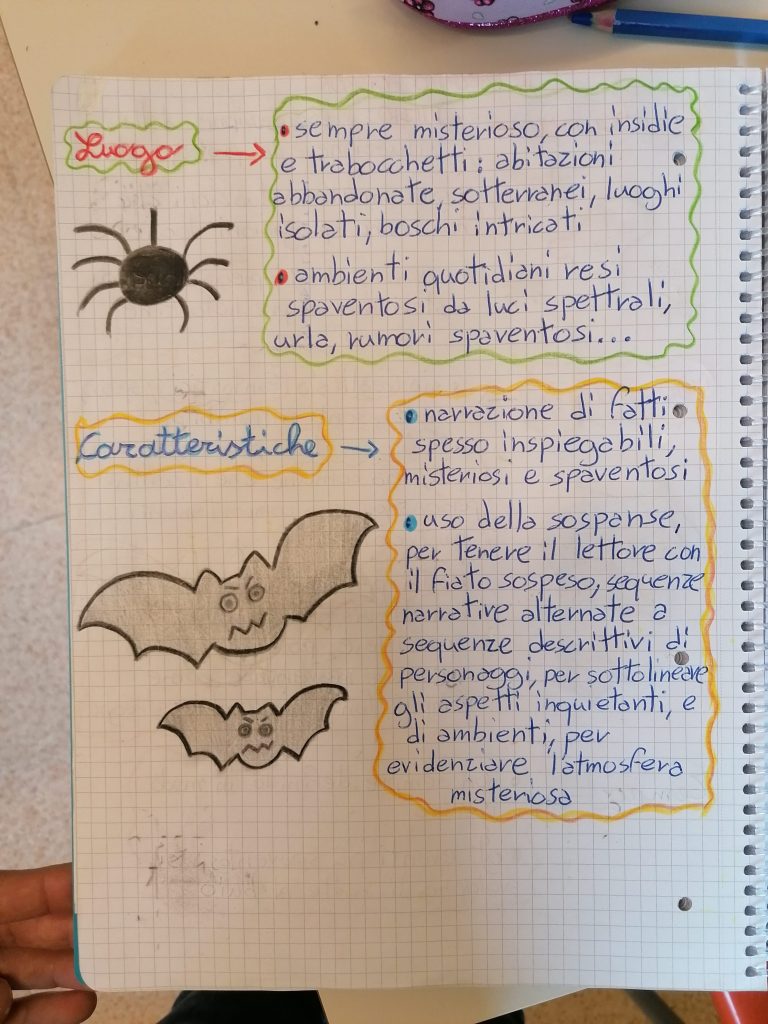 Luogo → • sempre misterioso, con insidie
e trabocchetti: abitazioni
abbandonate, sotterranei, luoghi
isolati, boschi intricati
• ambienti quotidiani resi
spaventosi da luci spettrali,
urla, rumori spaventosi...
Caratteristiche → • narrazione di fatti
spesso inspiegabili,
misteriosi e spaventosi
• uso della sospanse,
per tenere il lettore con
il fiato sospeso, sequenze
narrative alternate a
sequenze descrittivi di
personaggi, per sottolineare
gli aspetti inquietanti, e
di ambienti, per
evidenziare l'atmosfera
misteriosa